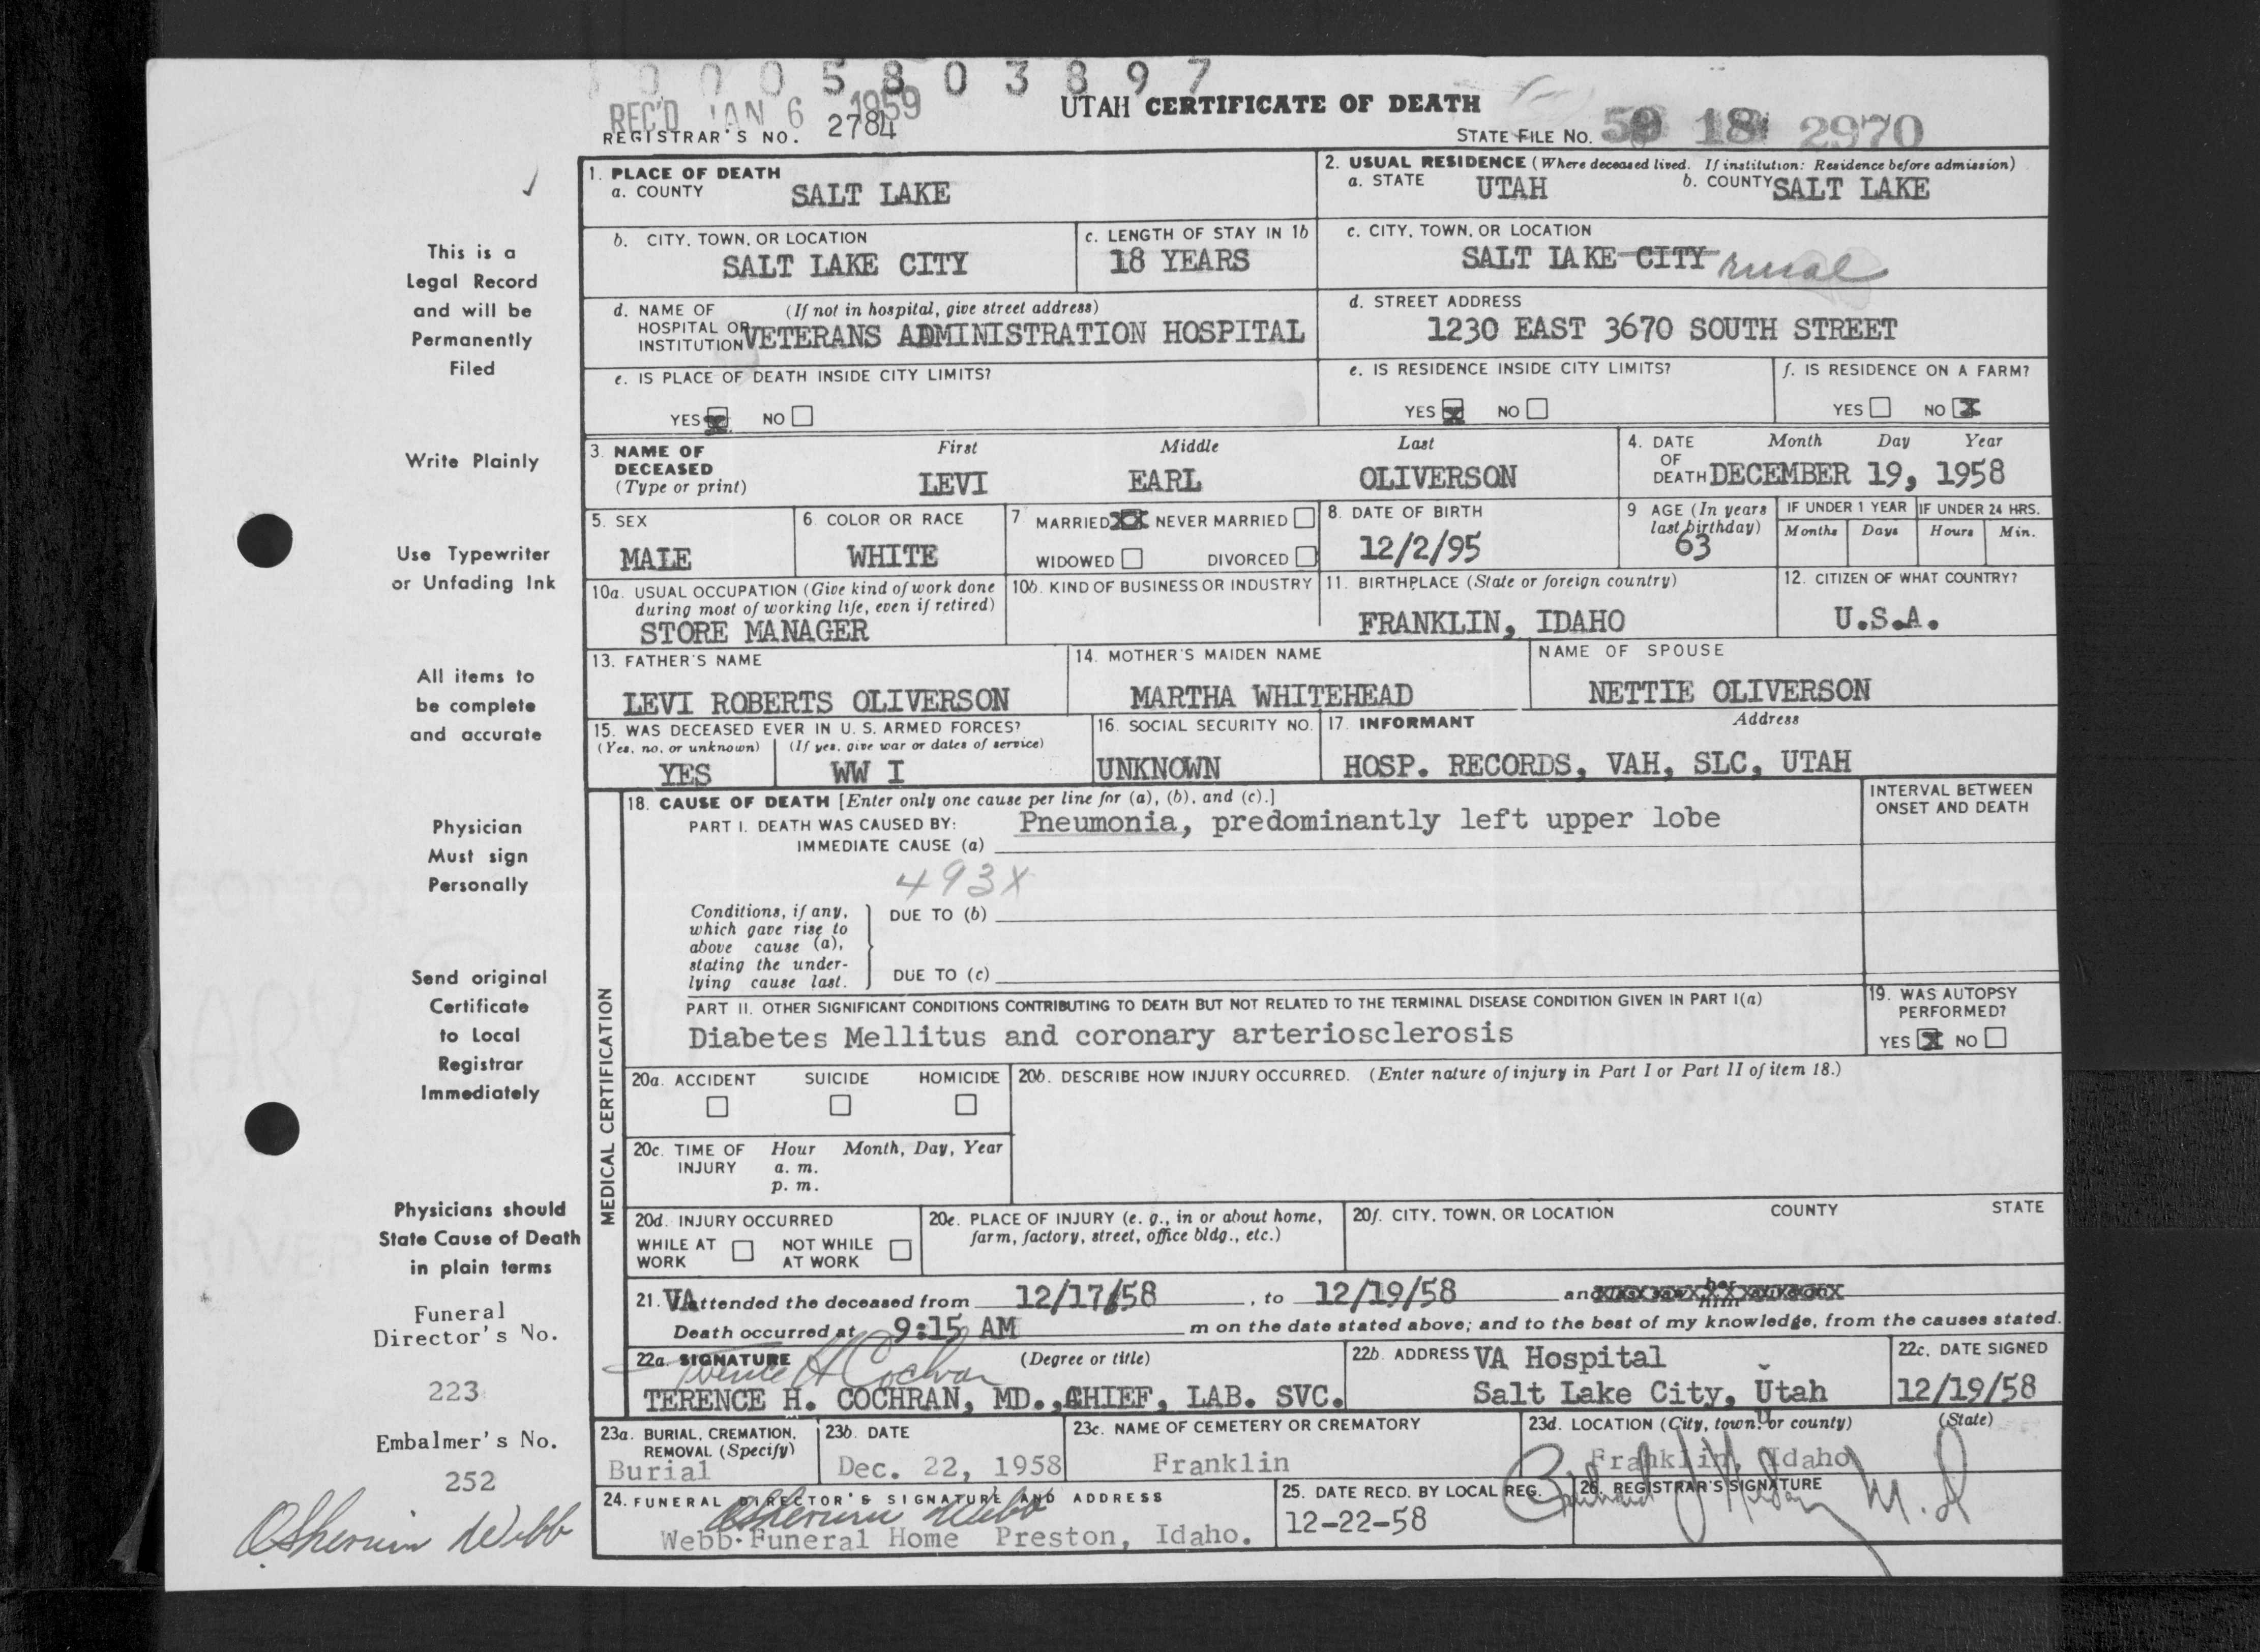 0 0 0 5 8 0 3 8 9 7
REC'D JAN 6 1959
UTAH CERTIFICATE OF DEATH
REGISTRAR'S NO. 2784
STATE FILE NO. 18 2970
This is a
Legal Record
and will be
Permanently
Filed
Write Plainly
Use Typewriter
or Unfading Ink
All items to
be complete
and accurate
Physician
Must sign
Personally
Send original
Certificate
to Local
Registrar
Immediately
Physicians should
State Cause of Death
in plain terms
Funeral
Director's No.
223
Embalmer's No.
252
O Sherwin Webb
1. PLACE OF DEATH
a. COUNTY SALT LAKE
2. USUAL RESIDENCE (Where deceased lived. If institution: Residence before admission)
a. STATE UTAH b. COUNTY SALT LAKE
b. CITY, TOWN, OR LOCATION
SALT LAKE CITY
c. LENGTH OF STAY IN 1b
18 YEARS
c. CITY, TOWN, OR LOCATION
SALT LAKE CITY rural
d. NAME OF (If not in hospital, give street address)
HOSPITAL OR
INSTITUTION VETERANS ADMINISTRATION HOSPITAL
d. STREET ADDRESS
1230 EAST 3670 SOUTH STREET
e. IS PLACE OF DEATH INSIDE CITY LIMITS?
YES X NO
e. IS RESIDENCE INSIDE CITY LIMITS?
YES X NO
f. IS RESIDENCE ON A FARM?
YES NO X
3. NAME OF
DECEASED
(Type or print)
First Middle Last
LEVI EARL OLIVERSON
4. DATE Month Day Year
OF
DEATH DECEMBER 19, 1958
5. SEX
MALE
6. COLOR OR RACE
WHITE
7. MARRIED XX NEVER MARRIED
WIDOWED DIVORCED
8. DATE OF BIRTH
12/2/95
9 AGE (In years
last birthday)
63
IF UNDER 1 YEAR IF UNDER 24 HRS.
Months Days Hours Min.
10a. USUAL OCCUPATION (Give kind of work done
during most of working life, even if retired)
STORE MANAGER
10b. KIND OF BUSINESS OR INDUSTRY
11. BIRTHPLACE (State or foreign country)
FRANKLIN, IDAHO
12. CITIZEN OF WHAT COUNTRY?
U.S.A.
13. FATHER'S NAME
LEVI ROBERTS OLIVERSON
14. MOTHER'S MAIDEN NAME
MARTHA WHITEHEAD
NAME OF SPOUSE
NETTIE OLIVERSON
15. WAS DECEASED EVER IN U. S. ARMED FORCES?
(Yes, no, or unknown) (If yes, give war or dates of service)
YES WW I
16. SOCIAL SECURITY NO.
UNKNOWN
17. INFORMANT Address
HOSP. RECORDS, VAH, SLC, UTAH
MEDICAL CERTIFICATION
18. CAUSE OF DEATH [Enter only one cause per line for (a), (b), and (c).]
INTERVAL BETWEEN
ONSET AND DEATH
PART I. DEATH WAS CAUSED BY: Pneumonia, predominantly left upper lobe
IMMEDIATE CAUSE (a)
493X
Conditions, if any,
which gave rise to
above cause (a),
stating the under-
lying cause last.
DUE TO (b)
DUE TO (c)
PART II. OTHER SIGNIFICANT CONDITIONS CONTRIBUTING TO DEATH BUT NOT RELATED TO THE TERMINAL DISEASE CONDITION GIVEN IN PART I(a)
Diabetes Mellitus and coronary arteriosclerosis
19. WAS AUTOPSY
PERFORMED?
YES X NO
20a. ACCIDENT SUICIDE HOMICIDE
20b. DESCRIBE HOW INJURY OCCURRED. (Enter nature of injury in Part I or Part II of item 18.)
20c. TIME OF Hour Month, Day, Year
INJURY a. m.
p. m.
20d. INJURY OCCURRED
WHILE AT NOT WHILE
WORK AT WORK
20e. PLACE OF INJURY (e. g., in or about home,
farm, factory, street, office bldg., etc.)
20f. CITY, TOWN, OR LOCATION COUNTY STATE
21. VA attended the deceased from 12/17/58, to 12/19/58 and her him
Death occurred at 9:15 AM m on the date stated above; and to the best of my knowledge, from the causes stated.
22a. SIGNATURE (Degree or title)
Terence H Cochran
TERENCE H. COCHRAN, MD., CHIEF, LAB. SVC.
22b. ADDRESS VA Hospital
Salt Lake City, Utah
22c. DATE SIGNED
12/19/58
23a. BURIAL, CREMATION,
REMOVAL (Specify)
Burial
23b. DATE
Dec. 22, 1958
23c. NAME OF CEMETERY OR CREMATORY
Franklin
23d. LOCATION (City, town, or county) (State)
Franklin, Idaho
24. FUNERAL DIRECTOR'S SIGNATURE AND ADDRESS
O Sherwin Webb
Webb Funeral Home Preston, Idaho.
25. DATE RECD. BY LOCAL REG.
12-22-58
26. REGISTRAR'S SIGNATURE
M. D